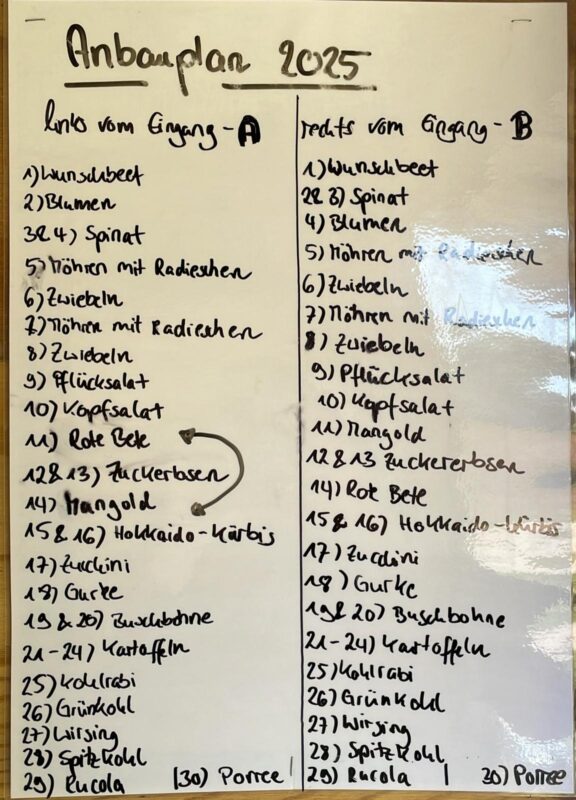 Anbauplan 2025
links vom Eingang - A
1) Wunschbeet
2) Blumen
3 & 4) Spinat
5) Möhren mit Radieschen
6) Zwiebeln
7) Möhren mit Radieschen
8) Zwiebeln
9) Pflücksalat
10) Kopfsalat
11) Rote Bete
12 & 13) Zuckerbsen
14) Mangold
15 & 16) Hokkaido-Kürbis
17) Zucchini
18) Gurke
19 & 20) Buschbohne
21-24) Kartoffeln
25) Kohlrabi
26) Grünkohl
27) Wirsing
28) Spitzkohl
29) Rucola | 30) Porree
rechts vom Eingang - B
1) Wunschbeet
2 & 3) Spinat
4) Blumen
5) Möhren mit Radieschen
6) Zwiebeln
7) Möhren mit Radieschen
8) Zwiebeln
9) Pflücksalat
10) Kopfsalat
11) Mangold
12 & 13 Zuckererbsen
14) Rote Bete
15 & 16) Hokkaido-Kürbis
17) Zucchini
18) Gurke
19 & 20) Buschbohne
21-24) Kartoffeln
25) Kohlrabi
26) Grünkohl
27) Wirsing
28) Spitzkohl
29) Rucola | 30) Porree